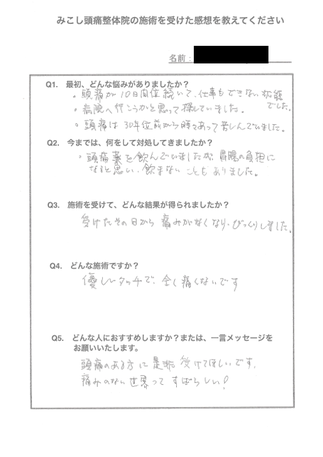 みこし頭痛整体院の施術を受けた感想を教えてください
名前：
Q1. 最初、どんな悩みがありましたか？
・頭痛が10日間位続いて、仕事もできない状態でした。
・病院へ行こうかと思って探していました。
・頭痛は30年位前から時々あって苦しんでいました。
Q2. 今までは、何をして対処してきましたか？
・頭痛薬を飲んでいましたが 胃腸の負担に
なると思い、飲まないこともありました。
Q3. 施術を受けて、どんな結果が得られましたか？
受けたその日から痛みがなくなり、びっくりしました。
Q4. どんな施術ですか？
優しいタッチで、全く痛くないです
Q5. どんな人におすすめしますか？または、一言メッセージを
お願いいたします。
頭痛のある方に是非受けてほしいです。
痛みのない世界って すばらしい！